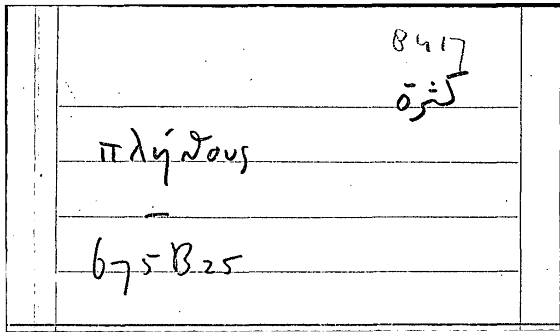 B 417
كثرة
πλήθους
—
675 B 25